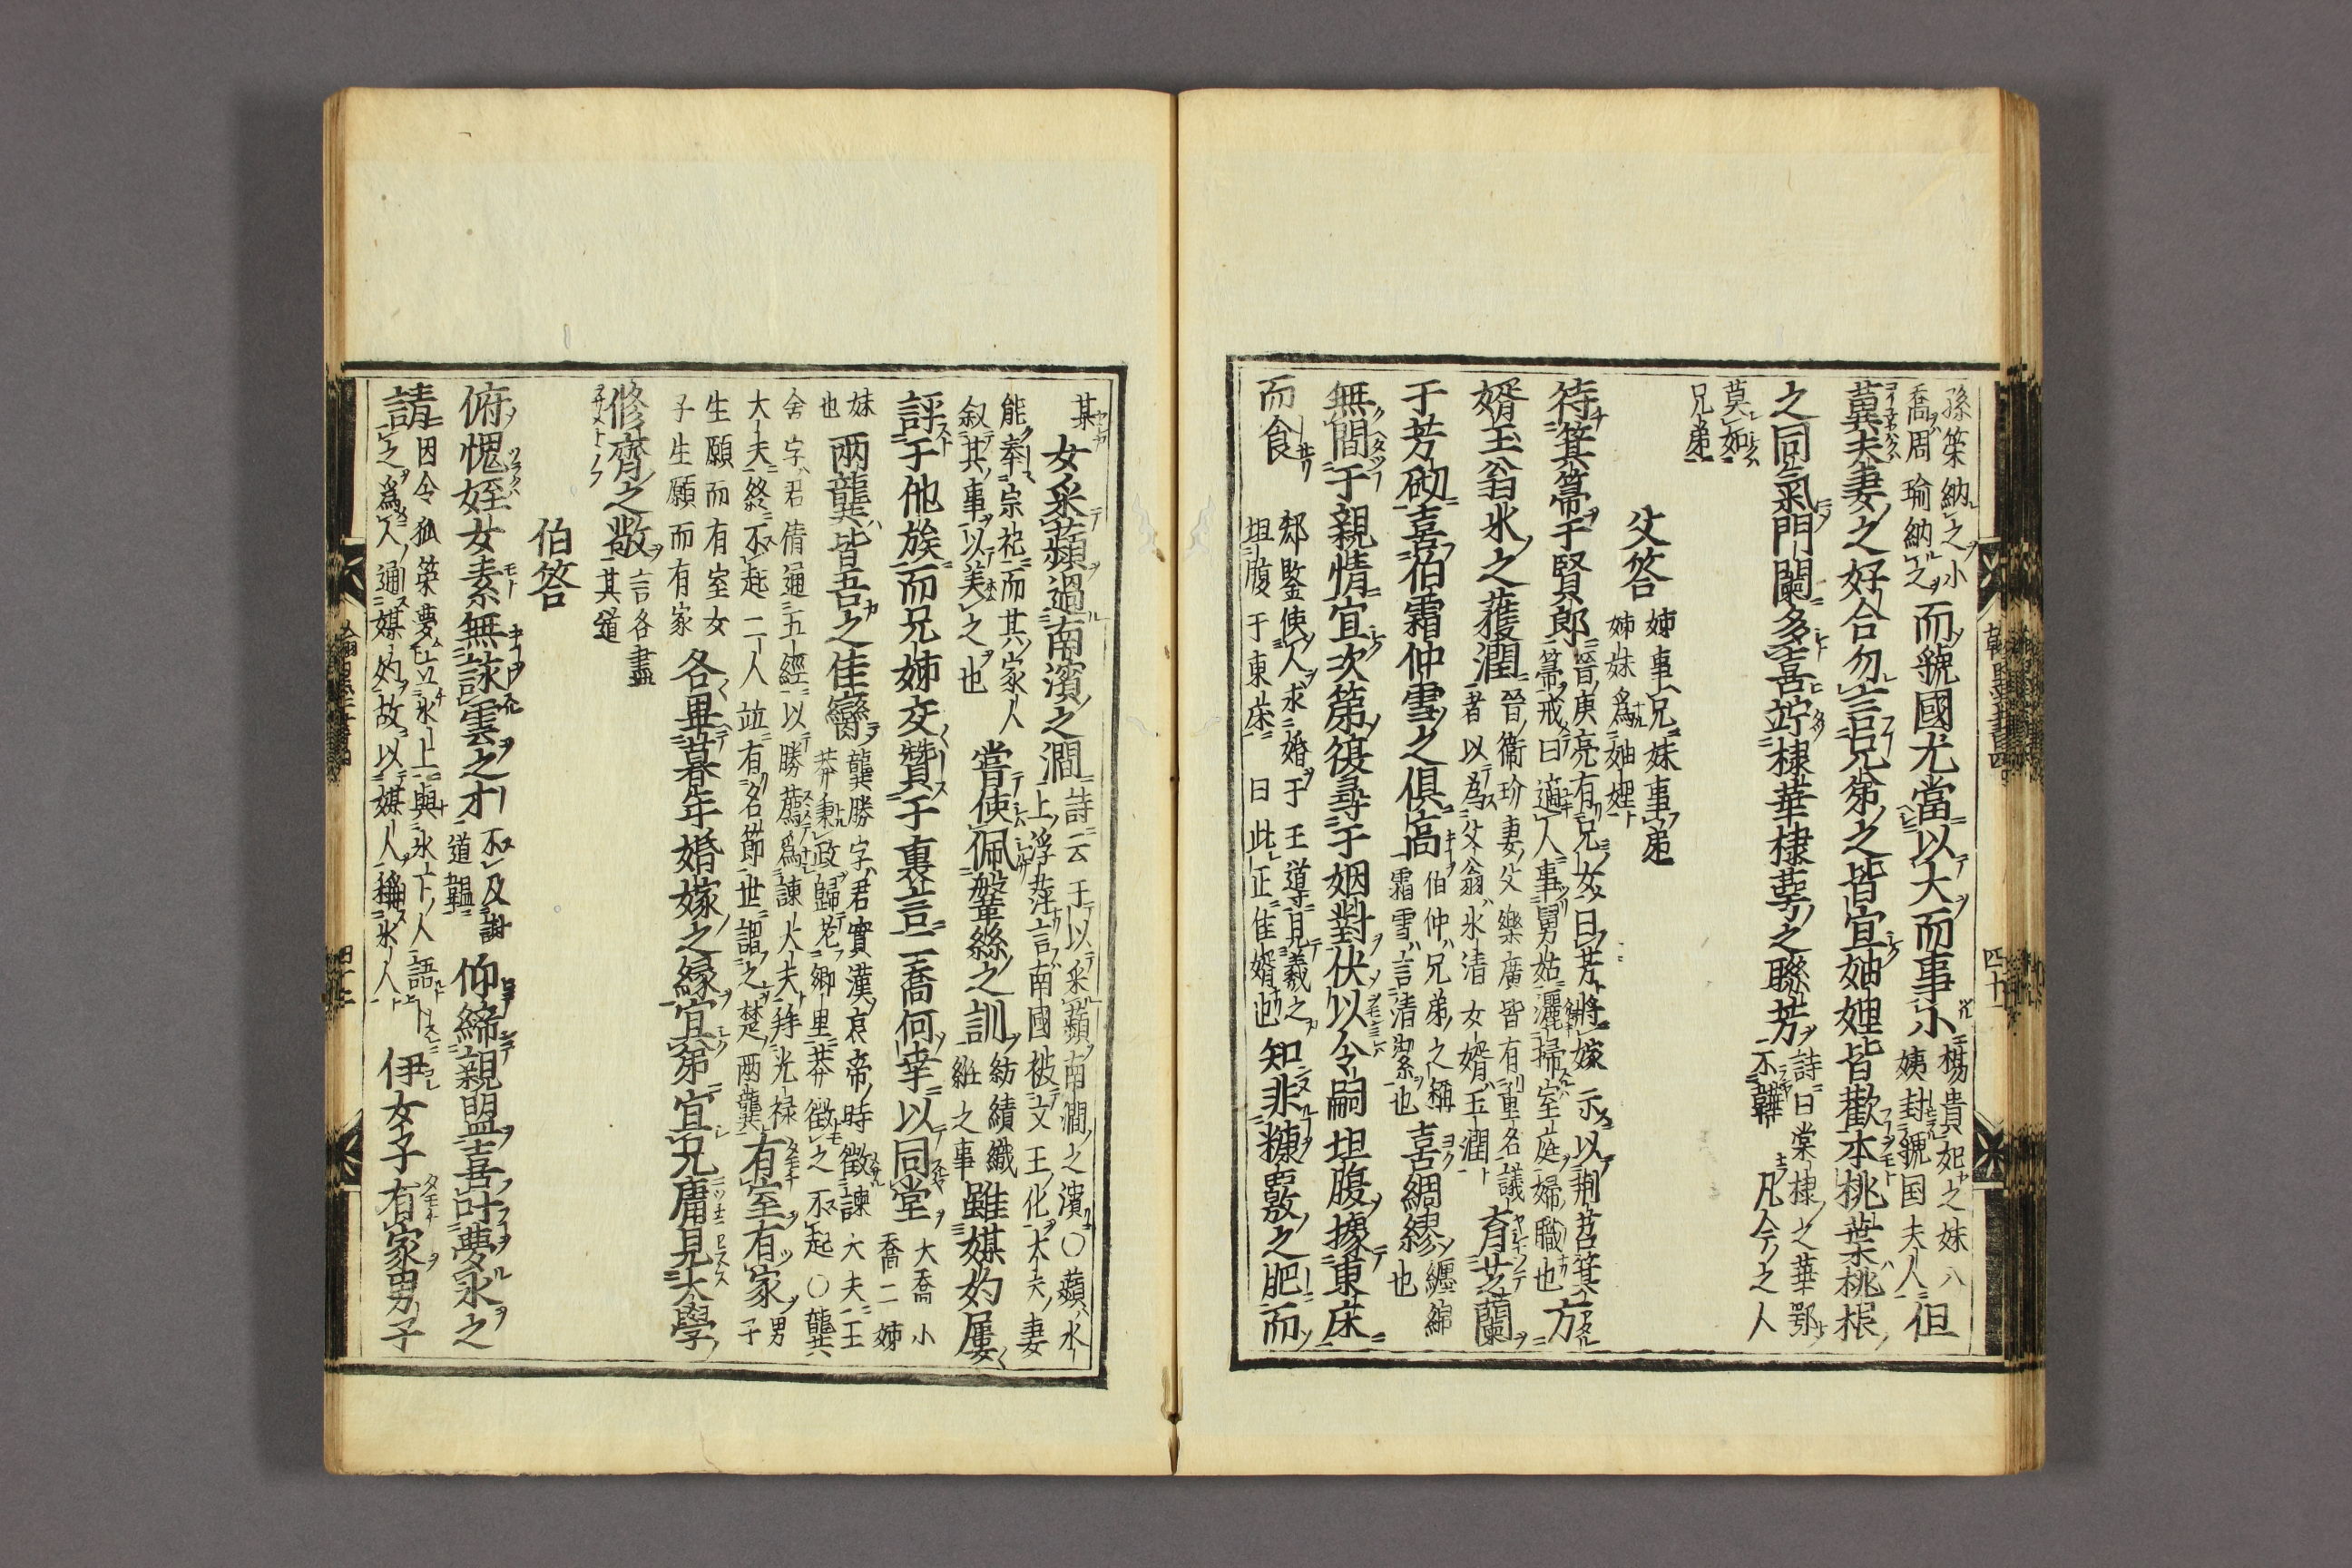 孫策納之小喬周瑜納之而虢國尤當以大而事小楊貴妃之妹八姨封虢国夫人但
冀夫妻之好合勿言兄弟之皆宜妯娌皆歡本桃葉桃根
之同氣門闌多喜竚棣華棣萼之聯芳詩曰棠棣之華鄂不韡凡今之人
莫如兄弟
父答姊事兄妹事弟姊妹爲妯娌
待箕箒于賢郎晉庾亮有兄女曰芳將嫁示以荆苕箕箒戒曰適人事舅姑灑掃室庭婦職也方
婿玉翁氷之薐潤晉衛玠妻父樂廣皆有重名議者以為父翁氷清女婿玉潤育芝蘭
于芳砌喜伯霜仲雪之俱高伯仲ハ兄弟之稱霜雪ハ言清潔也喜綢繆纒綿也
無間于親情宜次第復尋于姻對伏以令嗣坦腹據東床
而食郄鑒使人求婚于王導見羲之坦腹于東床曰此正佳婿也知非糠覈之肥而
某女采蘋過南濱之澗詩云于以采蘋南澗之濱○蘋水上浮萍言南國被文王化大夫妻
能奉宗祀而其家人叙其事以美之也嘗使佩鞶絲之訓紡績織絍之事雖媒妁屢
評于他族而兄姊交贊于裏言二喬何幸以同堂大喬小喬二姊
妹也兩龔皆吾之佳孌龔勝字君實漢哀帝時徵諫大夫王莽秉政歸老卿里莽徵之不起○龔
舍字君倩通五經以勝薦爲諫大夫拜光禄大夫終不起二人竝有名節世謂之楚兩龔有室有家男子
生願而有室女子生願而有家各畢暮年婚嫁之縁宜弟宜兄庸見大學
修齊之敬言各盡其道
伯答
俯愧姪女素無詠雲之才不及謝道韞仰締親盟喜叶夢氷之
請因令狐策夢立氷上與氷下人語之爲人通媒妁故以媒人稱氷人伊女子有家男子